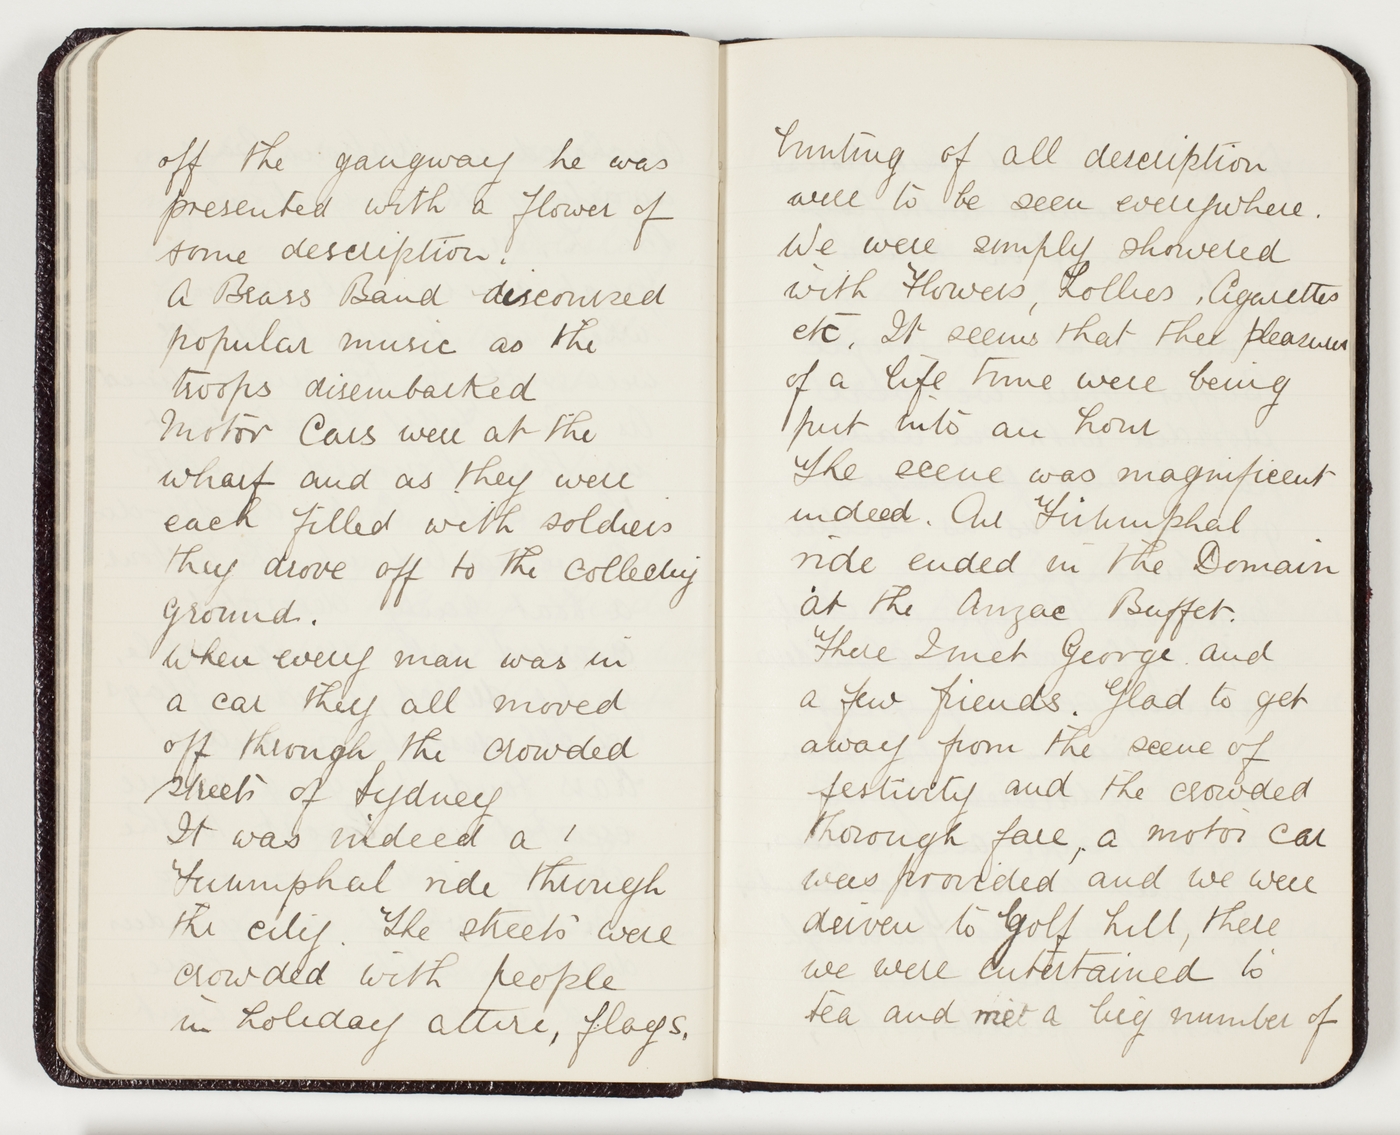 off the gangway he was
presented with a flower of
some description.
A Brass Band discoursed
popular music as the
troops disembarked
Motor Cars were at the
wharf and as they were
each filled with soldiers
they drove off to the collecting
ground.
When every man was in
a car they all moved
off through the crowded
streets of Sydney
It was indeed a
Triumphal ride through
the city. The streets were
crowded with people
in holiday attire, flags,
bunting of all description
were to be seen everywhere.
We were simply showered
with Flowers, Lollies, Cigarettes
etc. It seems that the pleasures
of a life time were being
put into an hour
The scene was magnificent
indeed. Our Triumphal
ride ended in the Domain
at the Anzac Buffet.
There I met George and
a few friends. Glad to get
away from the scene of
festivity and the crowded
thorough fare, a motor car
was provided and we were
driven to Golf Hill, there
we were entertained to
tea and met a big number of